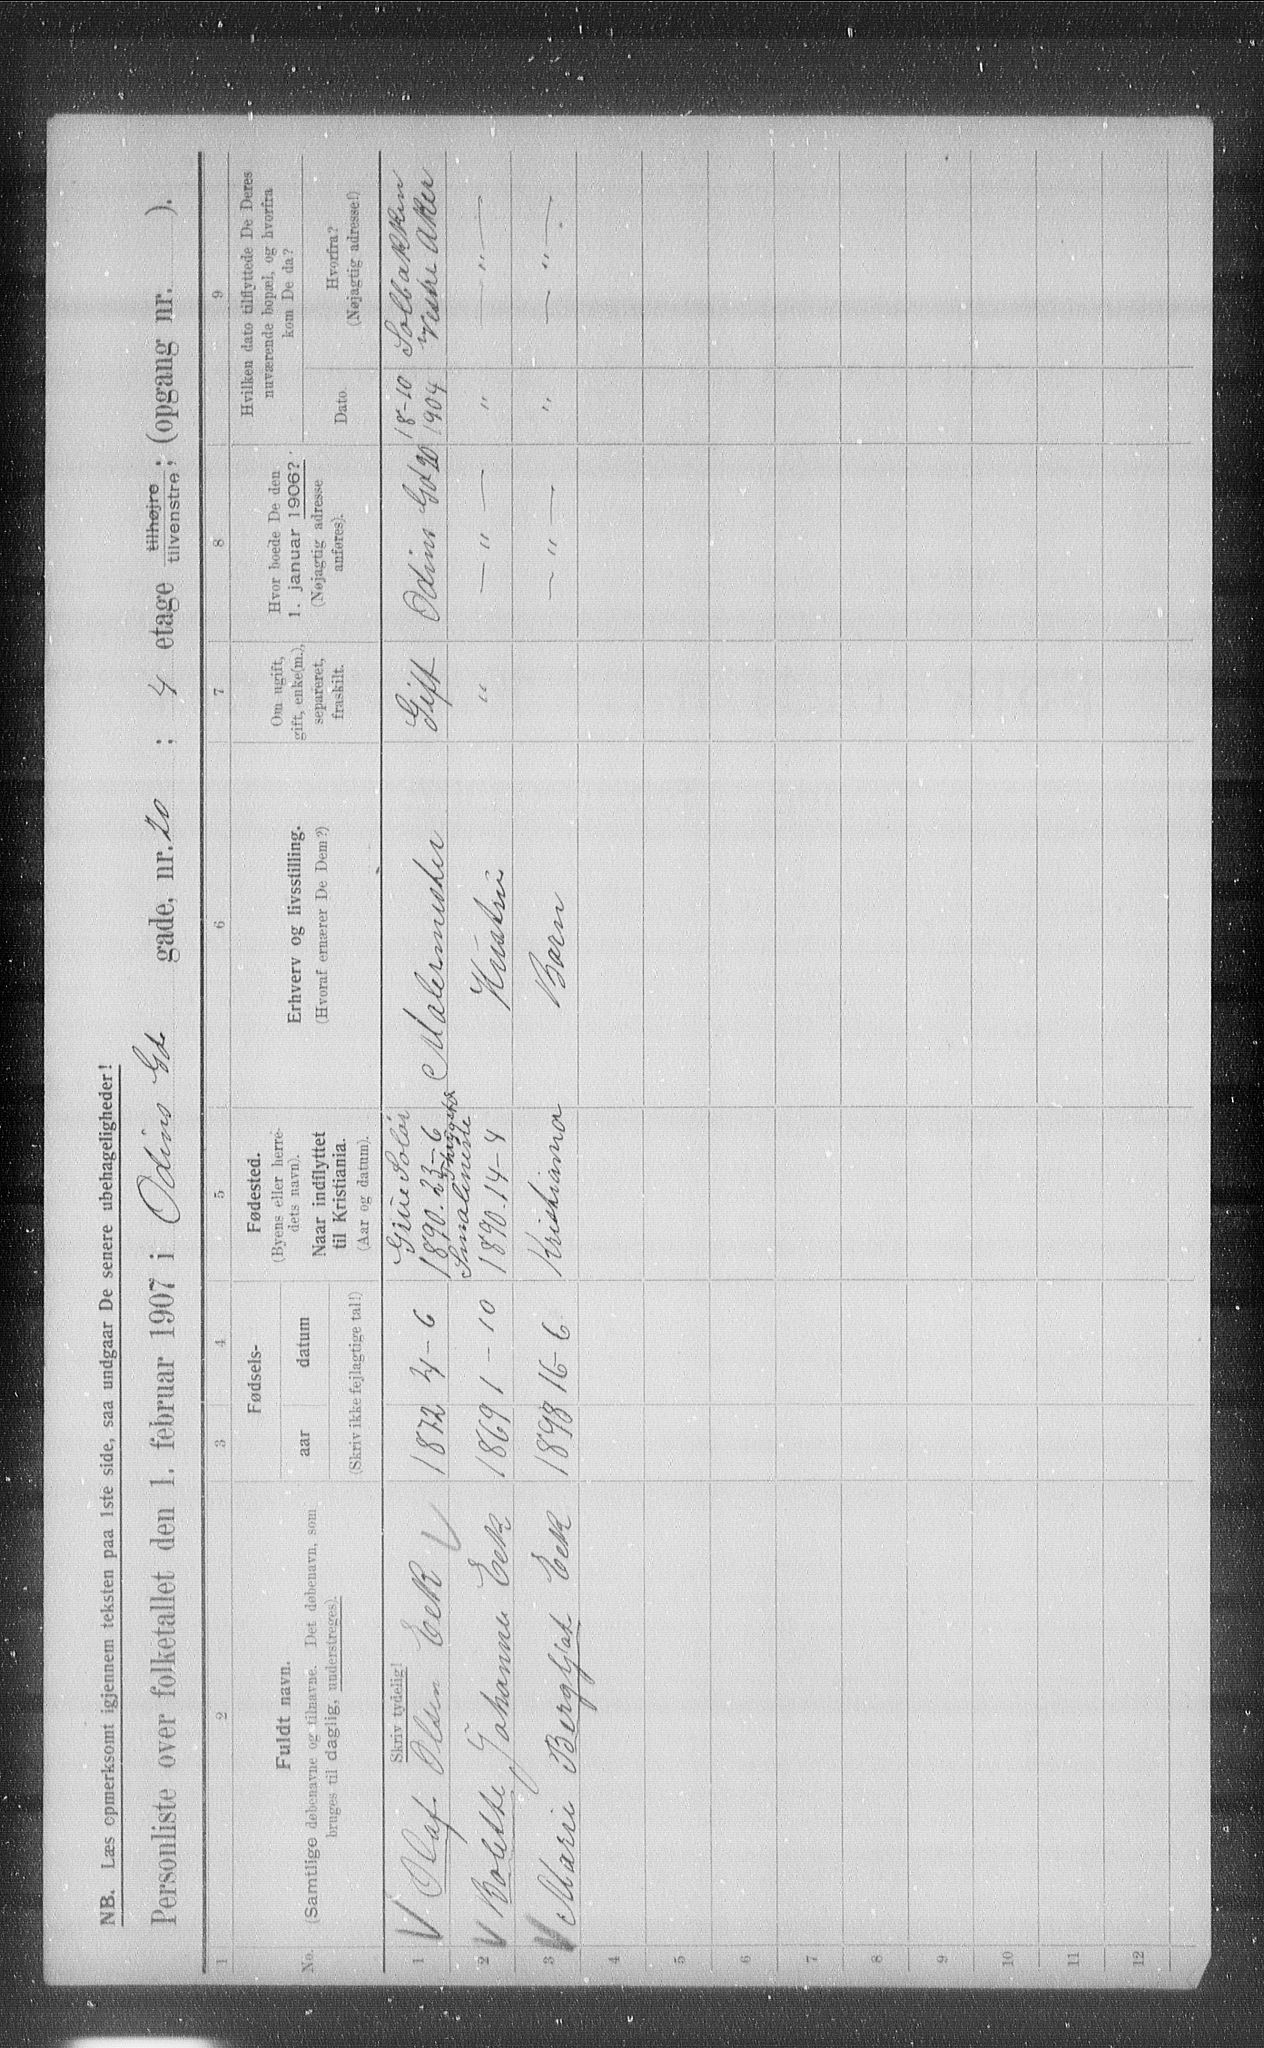 NB. Læs opmerksomt igjennem teksten paa 1ste side, saa undgaar De senere ubehageligheder!
Personliste over folketallet den 1. februar 1907 i Odins Gd. gade, nr. 20 ; 4 etage tilhøjre/tilvenstre; (opgang nr. ).
1 2 3 4 5 6 7 8 9
No.
Fuldt navn.
(Samtlige døbenavne og tilnavne. Det døbenavn, som
bruges til daglig, understreges).
Fødsels-
aar datum
(Skriv ikke fejlagtige tal!)
Fødested.
(Byens eller herre-
dets navn).
Naar indflyttet
til Kristiania.
(Aar og datum).
Erhverv og livsstilling.
(Hvoraf ernærer De Dem?)
Om ugift,
gift, enke(m.),
separeret,
fraskilt.
Hvor boede De den
1. januar 1906?
(Nøjagtig adresse
anføres).
Hvilken dato tilflyttede De Deres
nuværende bopæl, og hvorfra
kom De da?
Dato.
Hvorfra?
(Nøjagtig adresse!)
Skriv tydelig!
1 V Olaf Olsen Eek V 1872 4-6 Grue Solør 1890. 23-6 Malermester Gift Odins Gd 20 18-10 1904 Solbakken Vestre Aker
2 V Bolette Johanne Eek 1869 1-10 Smalenene 1890. 14-4 Hustru " — " — " — " —
3 V Marie Bergljot Eek 1898 16-6 Kristiania Barn — " — " — " —
4
5
6
7
8
9
10
11
12